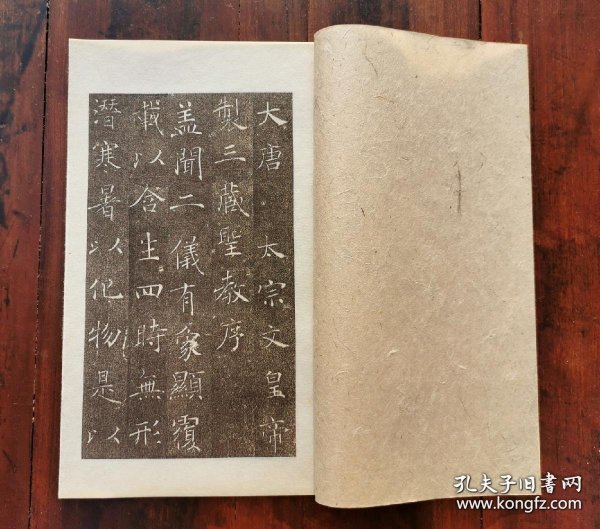 大唐太宗文皇帝
製三藏聖教序
盖聞二儀有象顯覆
載以含生四時無形
潛寒暑以化物是以
孔夫子旧书网
www.kongfz.com